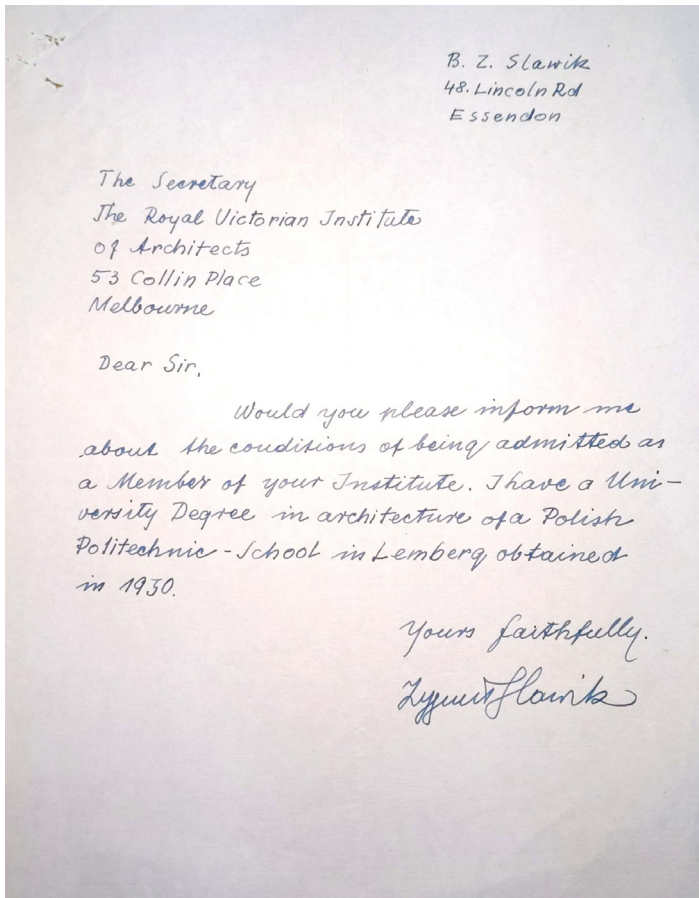 B. Z. Slawik
48. Lincoln Rd
Essendon
The Secretary
The Royal Victorian Institute
of Architects
53 Collin Place
Melbourne
Dear Sir,
Would you please inform me
about the conditions of being admitted as
a Member of your Institute. I have a Uni-
versity Degree in architecture of a Polish
Politechnic - School in Lemberg obtained
in 1930.
Yours faithfully.
Zygmunt Slawik